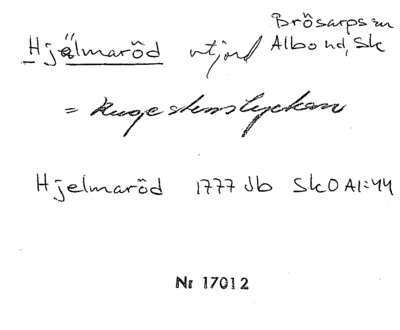 Hjälmaröd utjord Brösarps sn
Albo hd, Sk
= Rugestenslyckan
Hjelmaröd 1777 Jb Sk0 A1:44
Nr 17012